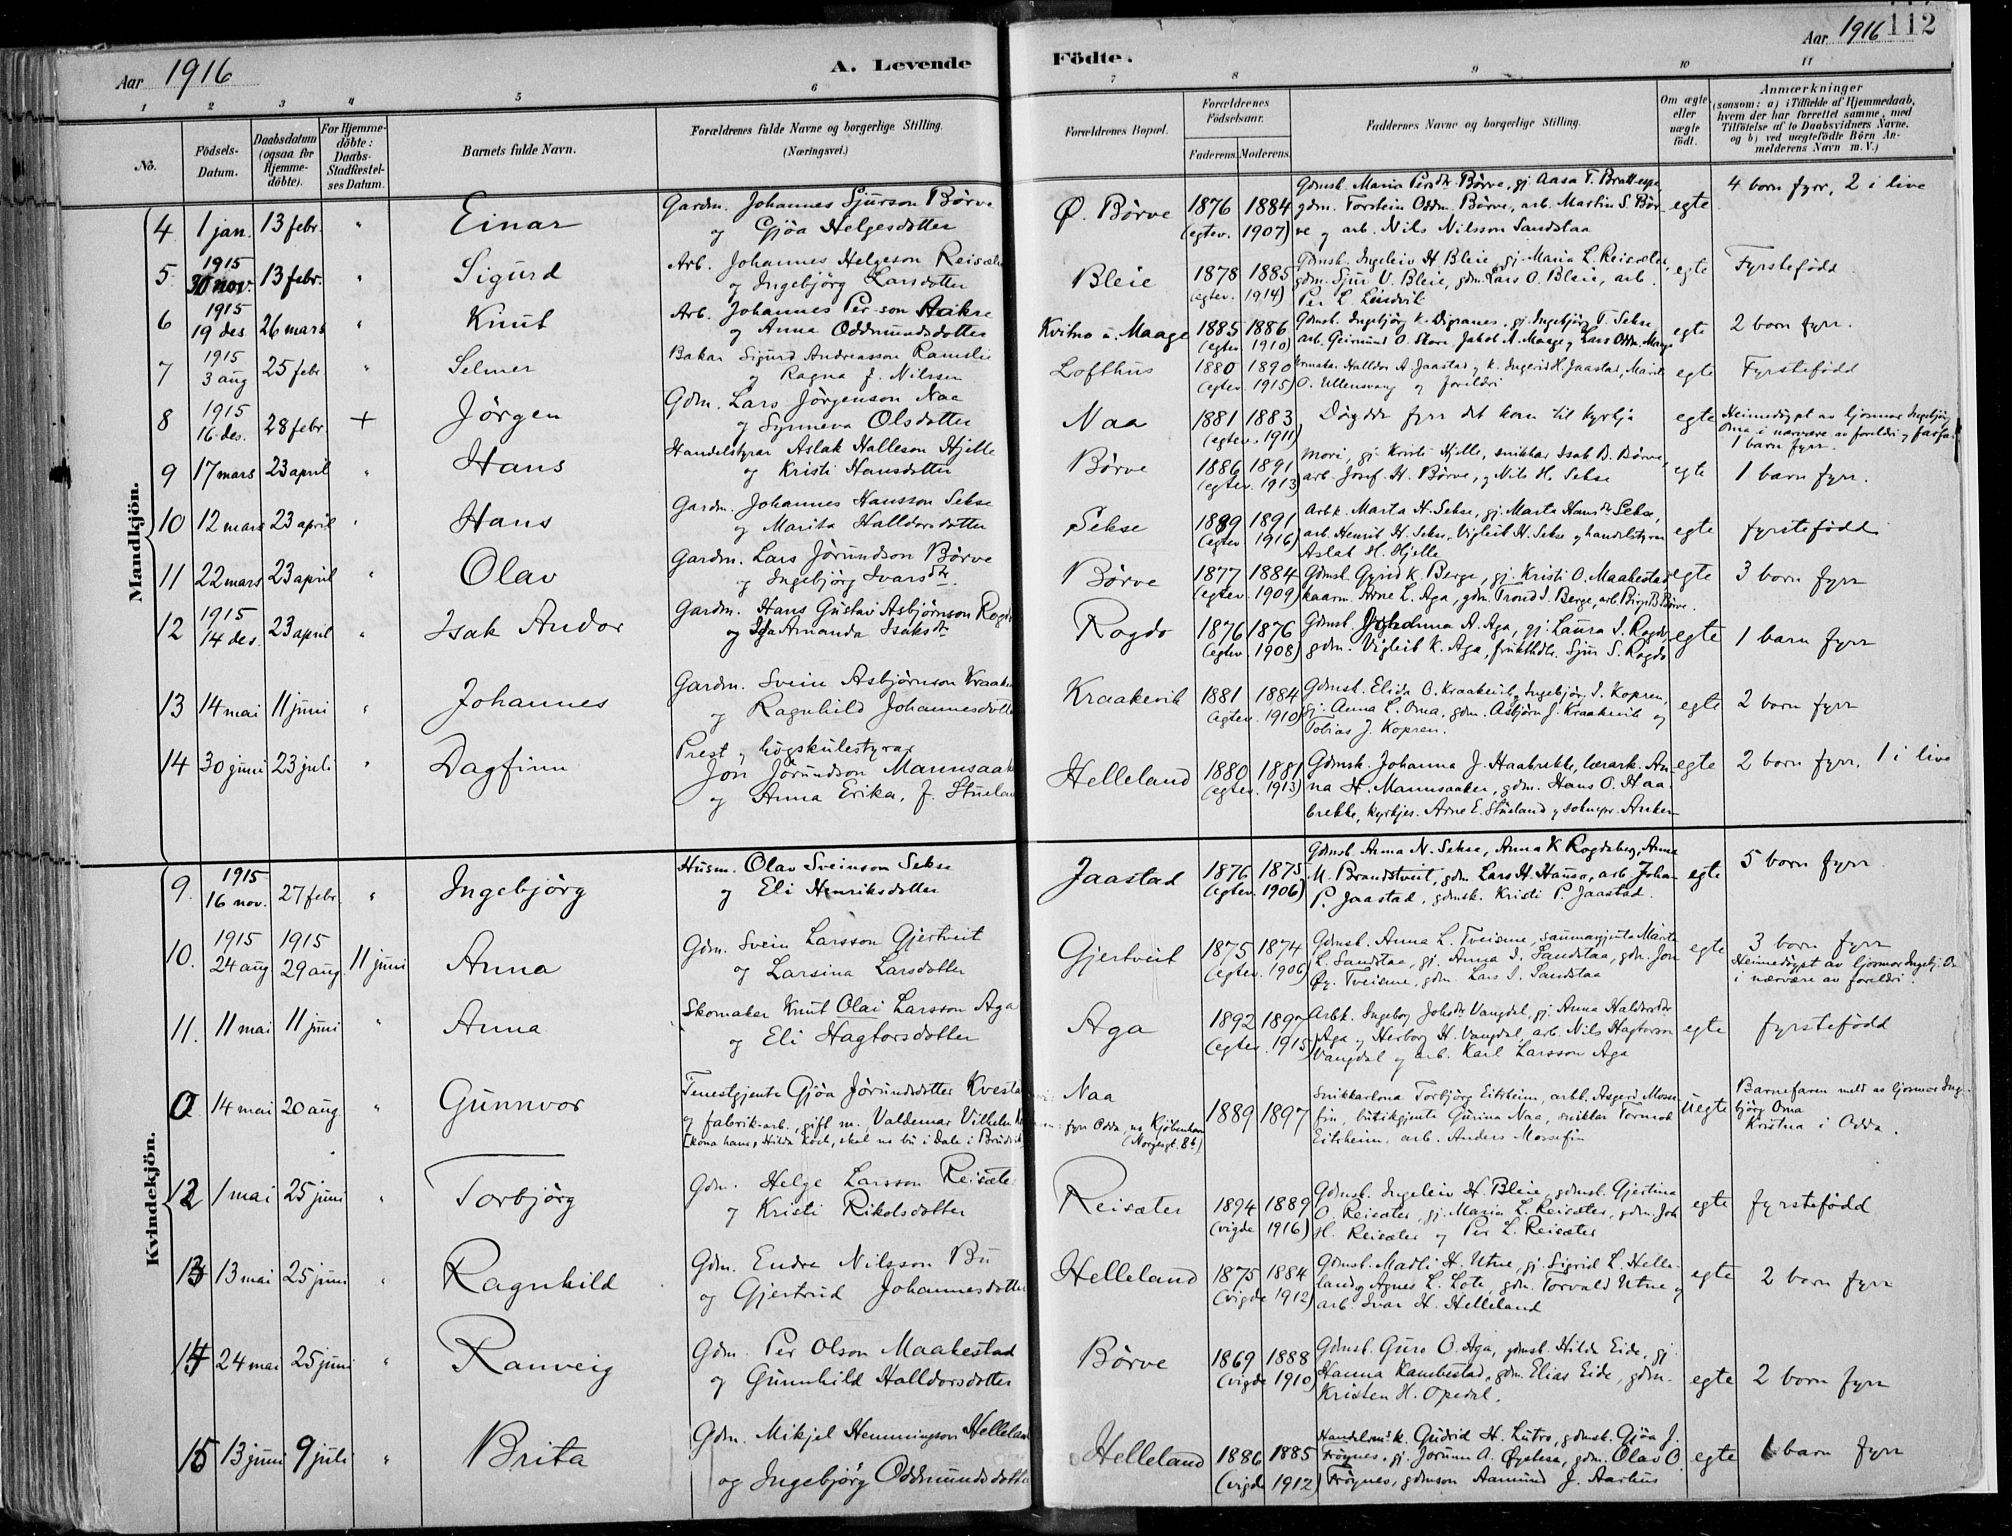 Aar 1916
A. Levende Födte.
Aar 1916 112
1 2 3 4 5 6 7 8 9 10 11
No.
Födsels-Datum.
Daabsdatum (ogsaa for Hjemme-döbte).
For Hjemme-döbte: Daabs-Stadfæstel-ses Datum.
Barnets fulde Navn.
Forældrenes fulde Navne og borgerlige Stilling.
(Næringsvei.)
Forældrenes Bopæl.
Forældrenes Födselsaar.
Faderens. Moderens.
Faddernes Navne og borgerlige Stilling.
Om ægte eller uægte födt.
Anmærkninger
(saasom: a) i Tilfælde af Hjemmedaab,
hvem der har forrettet samme, med
Tilföielse af to Daabsvidners Navne.
og b) ved uægtefödte Börn An-
melderens Navn m. V.)
Mandkjön.
4 1 jan. 13 febr. " Einar
Gardm. Johannes Sjurson Börve
og Gjöa Helgesdotter
Ø. Börve 1876 1884
(egtev. 1907)
Gdmsk. Maria Persdtr Börve, gj. Aasa T.
gdm. Torstein Oddm. Börve, arb. Martin S. Bör-
ve og arb. Nils Nilsson Sandstaa
egte
4 born fyrr, 2 i live
5 1915 30 nov. 13 febr. " Sigurd
Arb. Johannes Helgeson Reisæter
og Ingebjörg Larsdotter
Bleie 1878 1885
(egtev. 1914)
Gdmsk. Ingeleiv H. Bleie, gj. Maria L. Reisæter,
gdm. Sjur V. Bleie, gdm. Lars O. Bleie, arb.
Per L. Lindvik
egte
Fyrstefödd
6 1915 19 des. 26 mars " Knut
Arb. Johannes Person
og Anna Oddmundsdotter
Kvitno u. Maage 1885 1886
(egtev. 1910)
Gdmsk. Ingebjörg K. Digranes, gj. Ingebjörg T. Sekse,
arb. Geirmund O. Skare, Jakob M. Maage og Lars Oddm. Maage
egte
2 born fyrr.
7 1915 3 aug 25 febr " Selmer
Bakar Sigurd Andreasson Ramslie
og Ragna f. Nilssen
Lofthus 1880 1890
(egtev. 1915)
Halldor A. Jaastad og k. Ingerid H. Jaastad,
O. Ullensvang og foreldri
egte
Fyrstefödd
8 1915 16 des. 28 febr. + Jörgen
Gdm. Lars Jörgenson Naa
og Synneva Olsdotter
Naa 1881 1883
(egtev. 1911)
Döydde fyrr det kom til kyrkja
egte
Heimedöypt av ljormor Ingebjörg
Oma i nærvære av foreldri og farfar.
1 barn fyrr.
9 17 mars 23 april " Hans
Handelstyrar Aslak Halleson Hjelle
og Kristi Hansdotter
Börve 1886 1891
(egtev. 1913)
Mori, gj. Kristi Hjelle, snikkar Isak B. Börve,
arb. Josef H. Börve, og Nils H. Sekse
egte
1 barn fyrr.
10 12 mars 23 april " Hans
Gardm. Johannes Hansson Sekse
og Marita Halldorsdotter
Sekse 1889 1891
(egtev. 1916)
Arbk. Marta H. Sekse, gj. Marta Hansdtr Sekse,
arb. Henrik H. Sekse, Vigleik H. Sekse og handelstyrar
Aslak H. Hjelle
egte
fyrstefödd
11 22 mars 23 april " Olav
Gardm. Lars Jörundson Börve
og Ingebjörg Ivarsdtr.
Börve 1877 1884
(egtev. 1909)
Gdmsk. Gyrid K. Berge, gj. Kristi O. Maakestad
kaarm. Arne L. Aga, gdm. Trond I. Berge, arb. Birgit B. Börve.
egte
3 born fyrr
12 1915 14 des. 23 april " Isak Andor
Gardm. Hans Gustav Asbjörnson Rogdo
og Ida Amanda Isaksdtr
Rogdo 1876 1876
(egtev. 1908)
Gdmsk. Johanna A. Aga, gj. Laura I. Rogdo,
gdm. Vigleik K. Aga, frukthdlr. Sjur S. Rogdo
egte
1 barn fyrr
13 14 mai 11 juni " Johannes
Gardm. Svein Asbjörnson Kraakevik
og Ragnhild Johannesdotter
Kraakevik 1881 1884
(egtev. 1910)
Gdmsk. Elida O. Kraakevik, Ingebjörg I. Kopren,
gj. Anna L. Oma, gdm. Asbjörn J. Kraakevik og
Tobias J. Kopren.
egte
2 born fyrr
14 30 juni 23 juli " Dagfinn
Prest og högskulestyrar
Jon Jörundson Mannsaaker
og Anna Erika, f. Stueland
Helleland 1880 1881
(egtev. 1913)
Gdmsk. Johanna J. Haabrekke, lærark. An-
na H. Mannsaaker, gdm. Hans O. Haa-
brekke, kyrkjes. Arne E. Stueland og soknepr. Anker
egte
2 born fyrr, 1 i live
Kvindekjön.
9. 1915 16 nov. 27 febr. " Ingebjörg
Husm. Olav Sveinson Sekse
og Eli Henriksdotter
Jaastad 1876 1875
(egtev. 1906)
Gdmsk. Anna N. Sekse, Anna K. Rogdaberg, Anna
M. Brandstveit, gdm. Lars H. Hauso, arb. Johan
P. Jaastad, gdmsk. Kristi P. Jaastad.
egte
5 born fyrr.
10. 1915 24 aug 1915 29 aug. 11 juni Anna
Gdm. Svein Larsson Gjertveit
og Larsina Larsdotter
Gjertveit 1875 1874
(egtev. 1906)
Gdmsk. Anna L. Tveisme, saumagjenta Marta
L. Sandstaa, gj. Anna I. Sandstaa, gdm. Jon
Øy. Tveisme, gdm. Lars I. Sandstaa
egte
3 born fyrr
Heimedöypt av ljormor Ingebj. Oma
i nærvære av foreldri.
11. 11 mai 11 juni " Anna
Skomaker Knut Olai Larsson Aga
og Eli Hagtorsdotter
Aga 1892 1897
(egtev. 1915)
Arbk. Ingebor Johsdtr Vangdal, gj. Anna Haldorsdtr
Aga og Herborg H. Vangdal, arb. Nils Hagtorson
Vangdal og arb. Karl Larsson Aga
egte
fyrstefödd
0 14 mai 20 aug " Gunnvor
Tenestgjente Gjöa Jörundsdotter Kvesta
og fabrik-arb., gift m. Valdemar Vilhelm
[kona hans, Hilda Koch, skal no bu i Dale i
Naa
fyrr Odda, no Kjöbenhavn
(Norgesgt. 8 b)
1889 1897
Snikkarkona Torbjörg Eitrheim, arbk. Asgerd Mosse-
fin, butikgjente Gurina Naa, snikkar Tormod
Eitrheim, arb. Anders Mossefin
uegte
Barnefaren meld av ljormor Inge-
björg Oma
Kristna i Odda.
12 1 mai 25 juni " Torbjörg
Gdm. Helge Larsson Reisæter
og Kristi Nikolsdotter
Reisæter 1894 1889
(vigde 1916)
Gdmsk. Ingeleiv H. Bleie, gdmsk. Gjertina
O. Reisæter, gj. Maria L. Reisæter, gdm. Joh.
H. Reisæter og Per L. Reisæter
egte
fyrstefödd
13 13 mai 25 juni " Ragnhild
Gdm. Endre Nilsson Bu
og Gjertrud Johannesdotter
Helleland 1875 1884
(vigde 1912)
Gdmsk. Madli H. Utne, gj. Sigrid L. Helle-
land og Agnes L. Lote, gdm. Torvald Utne og
arb. Ivar H. Helleland
egte
2 born fyrr
14 24 mai 25 juni " Ranveig
Gdm. Per Olson Maakestad
og Gunnhild Halldorsdotter
Börve 1869 1888
(vigde 1910)
Gdmsk. Guro O. Aga, gdmsk. Hilda Eide, gj.
Hanna Kambestad, gdm. Elias Eide, gdm.
Kristen H. Opedal.
egte
2 born fyrr
15 13 juni 9 juli " Brita
Gdm. Mikjel Hemmingson Helleland
og Ingebjörg Oddmundsdotter
Helleland 1886 1885
(vigde 1912)
Handelsm.k. Gudrid H. Lutro, gdmsk. Gjöa J.
Fröynes, gj. Jorunn A. Øystese, gdm. Olav O.
Fröynes, gdmson Aamund J. Aarhus
egte
1 barn fyrr